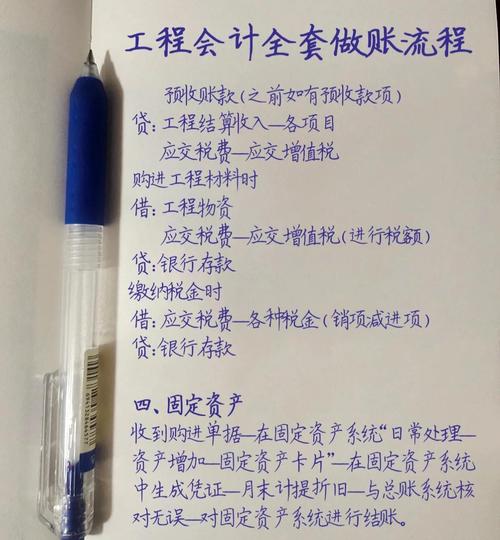 工程会计全套做账流程
预收账款(之前如有预收款项)
贷:工程结算收入—各项目
应交税费—应交增值税
购进工程材料时
借:工程物资
应交税费—应交增值税(进行税额)
贷:银行存款
缴纳税金时
借:应交税费—各种税金(销项减进项)
贷:银行存款
四、固定资产
收到购进单据—在固定资产系统“日常处理—
资产增加—固定资产卡片”—在固定资产系统
中生成凭证—月末计提折旧—与总账系统核
对无误—对固定资产系统进行结账。